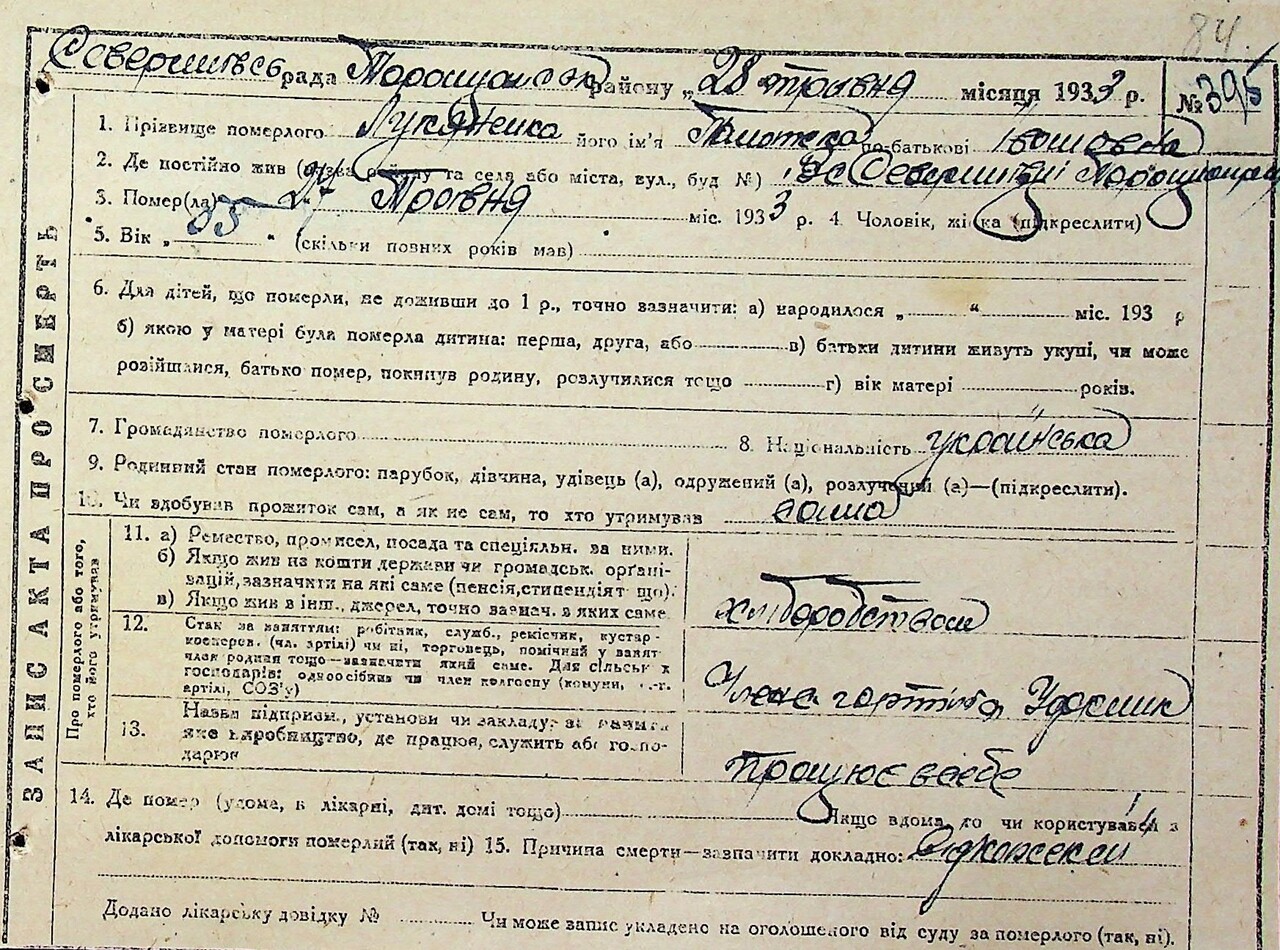 84.
рада району „28 травня місяця 1933 р. № 395
1. Прізвище померлого Лукяненка його ім'я по-батькові
2. Де постійно жив (назва району та села або міста, вул., буд №)
3. Помер(ла) 27 Травня міс. 1933 р. 4. Чоловік, жінка (підкреслити)
5. Вік „ 35 “ (скільки повних років мав)
6. Для дітей, що померли, не доживши до 1 р., точно зазначити: а) народилося „ “ міс. 193 р
б) якою у матері була померла дитина: перша, друга, або в) батьки дитини живуть укупі, чи може
розійшлися, батько помер, покинув родину, розлучилися тощо г) вік матері років.
7. Громадянство померлого 8. Національність українська
9. Родинний стан померлого: парубок, дівчина, удівець (а), одружений (а), розлучений (а)—(підкреслити).
10. Чи здобував прожиток сам, а як не сам, то хто утримував сама
ЗАПИС АКТА ПРО СМЕРТЬ
Про померлого або того, хто його утримував
11. а) Ремество, промисел, посада та спеціяльн. за ними.
б) Якщо жив на кошти держави чи громадськ. орґані-
зацій, зазначити на які саме (пенсія, стипендіят що).
в) Якщо жив в інш., джерел, точно зазнач. в яких саме
хліборобством
12. Стак за заняттям: робітник, служб., ремісник, кустар-
кооперов. (чл. артілі) чи ні, торговець, помічний у занят.
член родини тощо—зазначити який саме. Для сільськ х
господарів: одноосібник чи член колгоспу (комуни,
артілі, СОЗ'у)
13. Назва підприєм., установи чи закладу
яке виробництво, де працює, служить або госпо-
дарює
працює в себе
14. Де помер (удома, в лікарні, дит. домі тощо) Якщо вдома, то чи користувався з
лікарської допомоги померлий (так, ні) 15. Причина смерти—зазначити докладно:
Додано лікарську довідку № Чи може запис укладено на оголошеного від суду за померлого (так, ні).